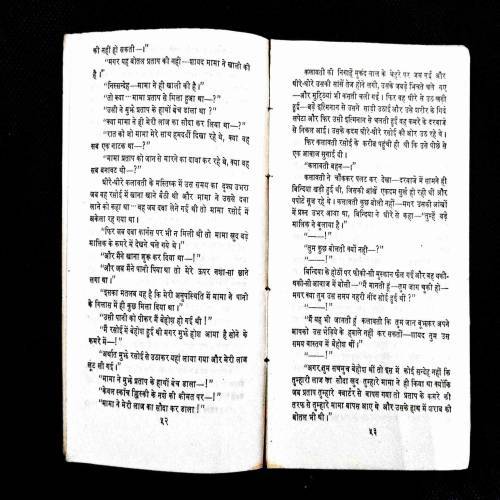 की नहीं हो सकती—।"
"मगर यह बोतल प्रताप की नहीं—शायद मामा ने खाली की
है।"
"निस्सन्देह—मामा ने ही खाली की है।"
"तो क्या—मामा प्रताप से मिला हुआ था—?"
"उसी ने मुझे प्रताप के हाथों बेच डाला था ?"
"क्या मामा ने ही मेरी लाज का सौदा कर लिया था—?"
"रात को वो मामा मेरे साथ हमदर्दी दिखा रहे थे, क्या वह
सब एक नाटक था—?"
"मामा प्रताप को जान से मारने का दावा कर रहे थे, क्या वह
सब बनावट थी—?"
धीरे-धीरे कलावती के मस्तिष्क में उस समय का दृश्य उभरा
जब वह रसोई में खाना खाने बैठी थी और मामा ने उससे दवा
लाने को कहा था—वह जब दवा लेने गई थी तो मामा रसोई में
अकेला रह गया था।
"फिर जब दवा कार्नस पर भी न मिली थी तो मामा खुद बड़े
मालिक के कमरे में देखने चले गये थे।"
"और मैंने खाना शुरू कर दिया था—!"
"और जब मैंने पानी पिया था तो मेरे ऊपर नशा-सा छाने
लगा था।"
"इसका मतलब यह है कि मेरी अनुपस्थिति में मामा ने पानी
के गिलास में ही कुछ मिला दिया था।"
"उसी पानी को पीकर मैं बेहोश हो गई थी !"
"मैं रसोई में बेहोश हुई थी मगर मुझे होश आया है सोने के
कमरे में—!"
"अर्थात मुझे रसोई से उठाकर यहां लाया गया और मेरी लाज
लूट ली गई।"
"मामा ने मुझे प्रताप के हाथों बेच डाला—!"
"केवल स्कॉच ह्विस्की के नशे की कीमत पर—!"
"मामा ने मेरी लाज का सौदा कर डाला !"
५२
कलावती की निगाहें मुकंद लाल के चेहरे पर जम गईं और
धीरे-धीरे उसकी सांसें तेज होने लगीं, उसके जबड़े भिंचते चले गए
—और मुट्ठियां भी कसती चली गईं। फिर वह धीरे से उठ खड़ी
हुई—बड़े इत्मिनान से उसने साड़ी उठाई और उसे शरीर के गिर्द
लपेटा और फिर उसी इत्मिनान से चलती हुई वह कमरे के दरवाजे
से निकल आई। उसके कदम धीरे-धीरे रसोई की ओर उठ रहे थे।
फिर कलावती रसोई के करीब पहुंची ही थी कि उसे पीछे से
एक आवाज सुनाई दी।
"कलावती बहन—।"
कलावती ने चौंककर पलट कर देखा—दरवाजे में सामने ही
बिन्दिया खड़ी हुई थी, जिसकी आंखें एकदम सुर्ख हो रही थीं और
पपोटे सूज रहे थे। कलावती कुछ बोली नहीं—मगर उसकी आंखों
में प्रश्न उभर आया था, बिन्दिया ने धीरे से कहा—"तुम्हें बड़े
मालिक ने बुलाया है।"
"——!"
"तुम कुछ बोलतीं क्यों नहीं—?"
"——!"
बिन्दिया के होंठों पर फीकी-सी मुस्कान फैल गई और वह थकी-
थकी-सी आवाज में बोली—"मैं जानती हूं—तुम जाग चुकी हो—
मगर क्या तुम उस समय गहरी नींद सोई हुई थीं ?"
"——!"
"मैं यह भी जानती हूं कलावती कि तुम जान बूझकर अपने
आपको उस भेड़िये के हवाले नहीं कर सकतीं—शायद तुम उस
समय वास्तव में बेहोश थीं।"
"——!"
"अगर तुम सचमुच बेहोश थीं तो इस में कोई सन्देह नहीं कि
तुम्हारी लाज का सौदा खुद तुम्हारे मामा ने ही किया था क्योंकि
जब प्रताप तुम्हारे क्वार्टर से वापस गया तो प्रताप के कमरे की
तरफ से तुम्हारे मामा वापस आए थे और उसके हाथ में शराब की
बोतल भी थी।"
५३